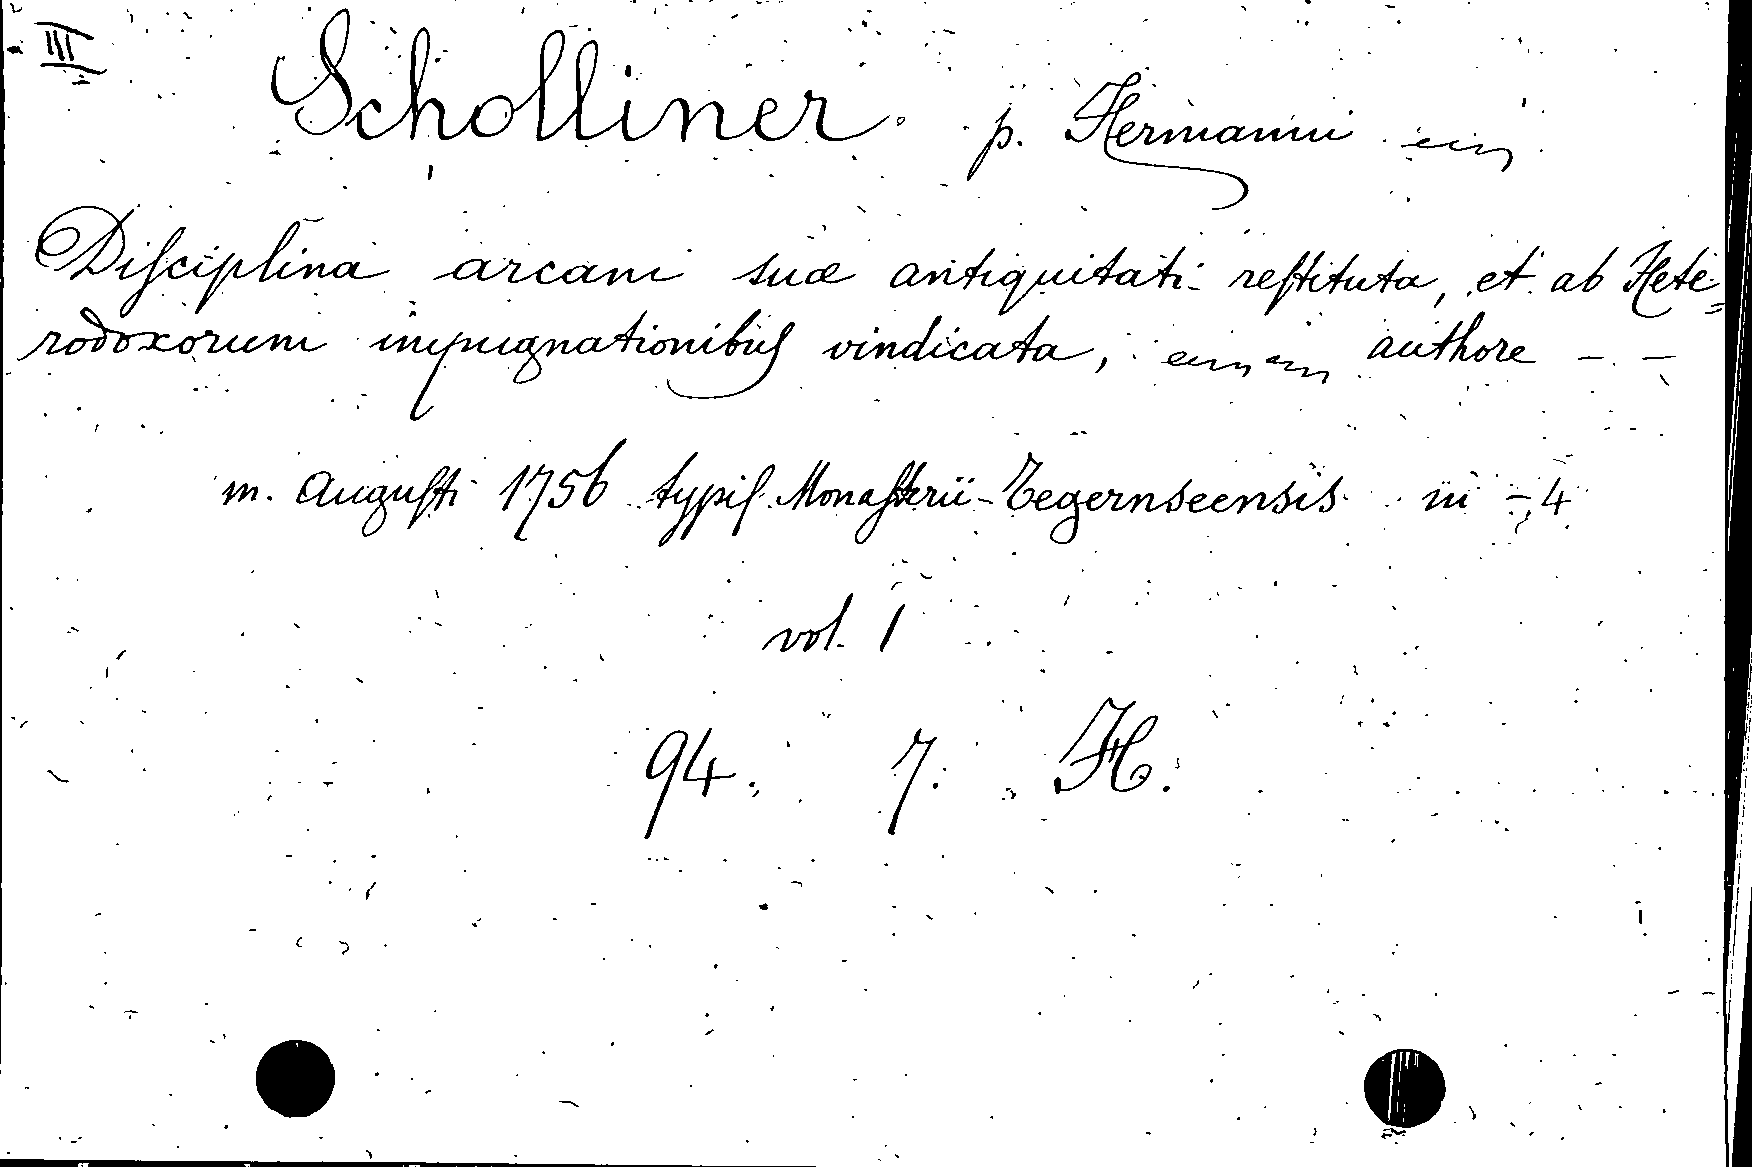 III
Scholliner. p. Hermanni
Disciplina arcani suæ antiquitati restituta, et ab Hete=
rodoxorum impugnationibus vindicata, authore - -
m. Augusti 1756 typis Monasterii-Tegernseensis in - 4
vol. 1
94. 7. H.